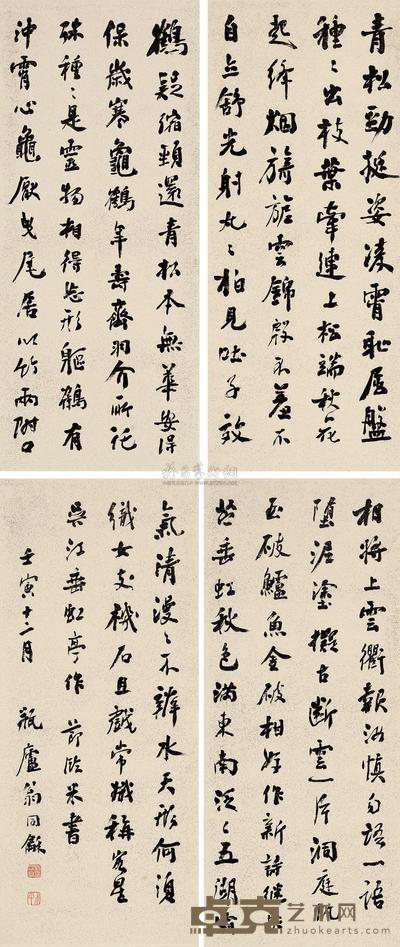 青松勁挺姿凌霄恥屈盤
種〻出枝葉牽連上松端秋花
起絳烟旖旎雲錦殷不羞不
自立舒光射丸〻柏見吐子效
鶴疑縮頸還青松本無華安得
保歲寒龜鶴年壽齊羽介所託
殊種〻是靈物相得忘形軀鶴有
沖霄心龜厭曳尾居以竹兩附口
相將上雲衢報汝慎勿語一語
墮泥塗擬古斷雲一片洞庭帆
玉破鱸魚金破柑好作新詩繼桑
苧垂虹秋色滿東南泛〻五湖霜
氣清漫〻不辨水天形何須
織女支機石且戲常娥稱客星
吳江垂虹亭作 節臨米書
壬寅十二月 瓶廬翁同龢
卓克艺术网
www.zhuokearts.com